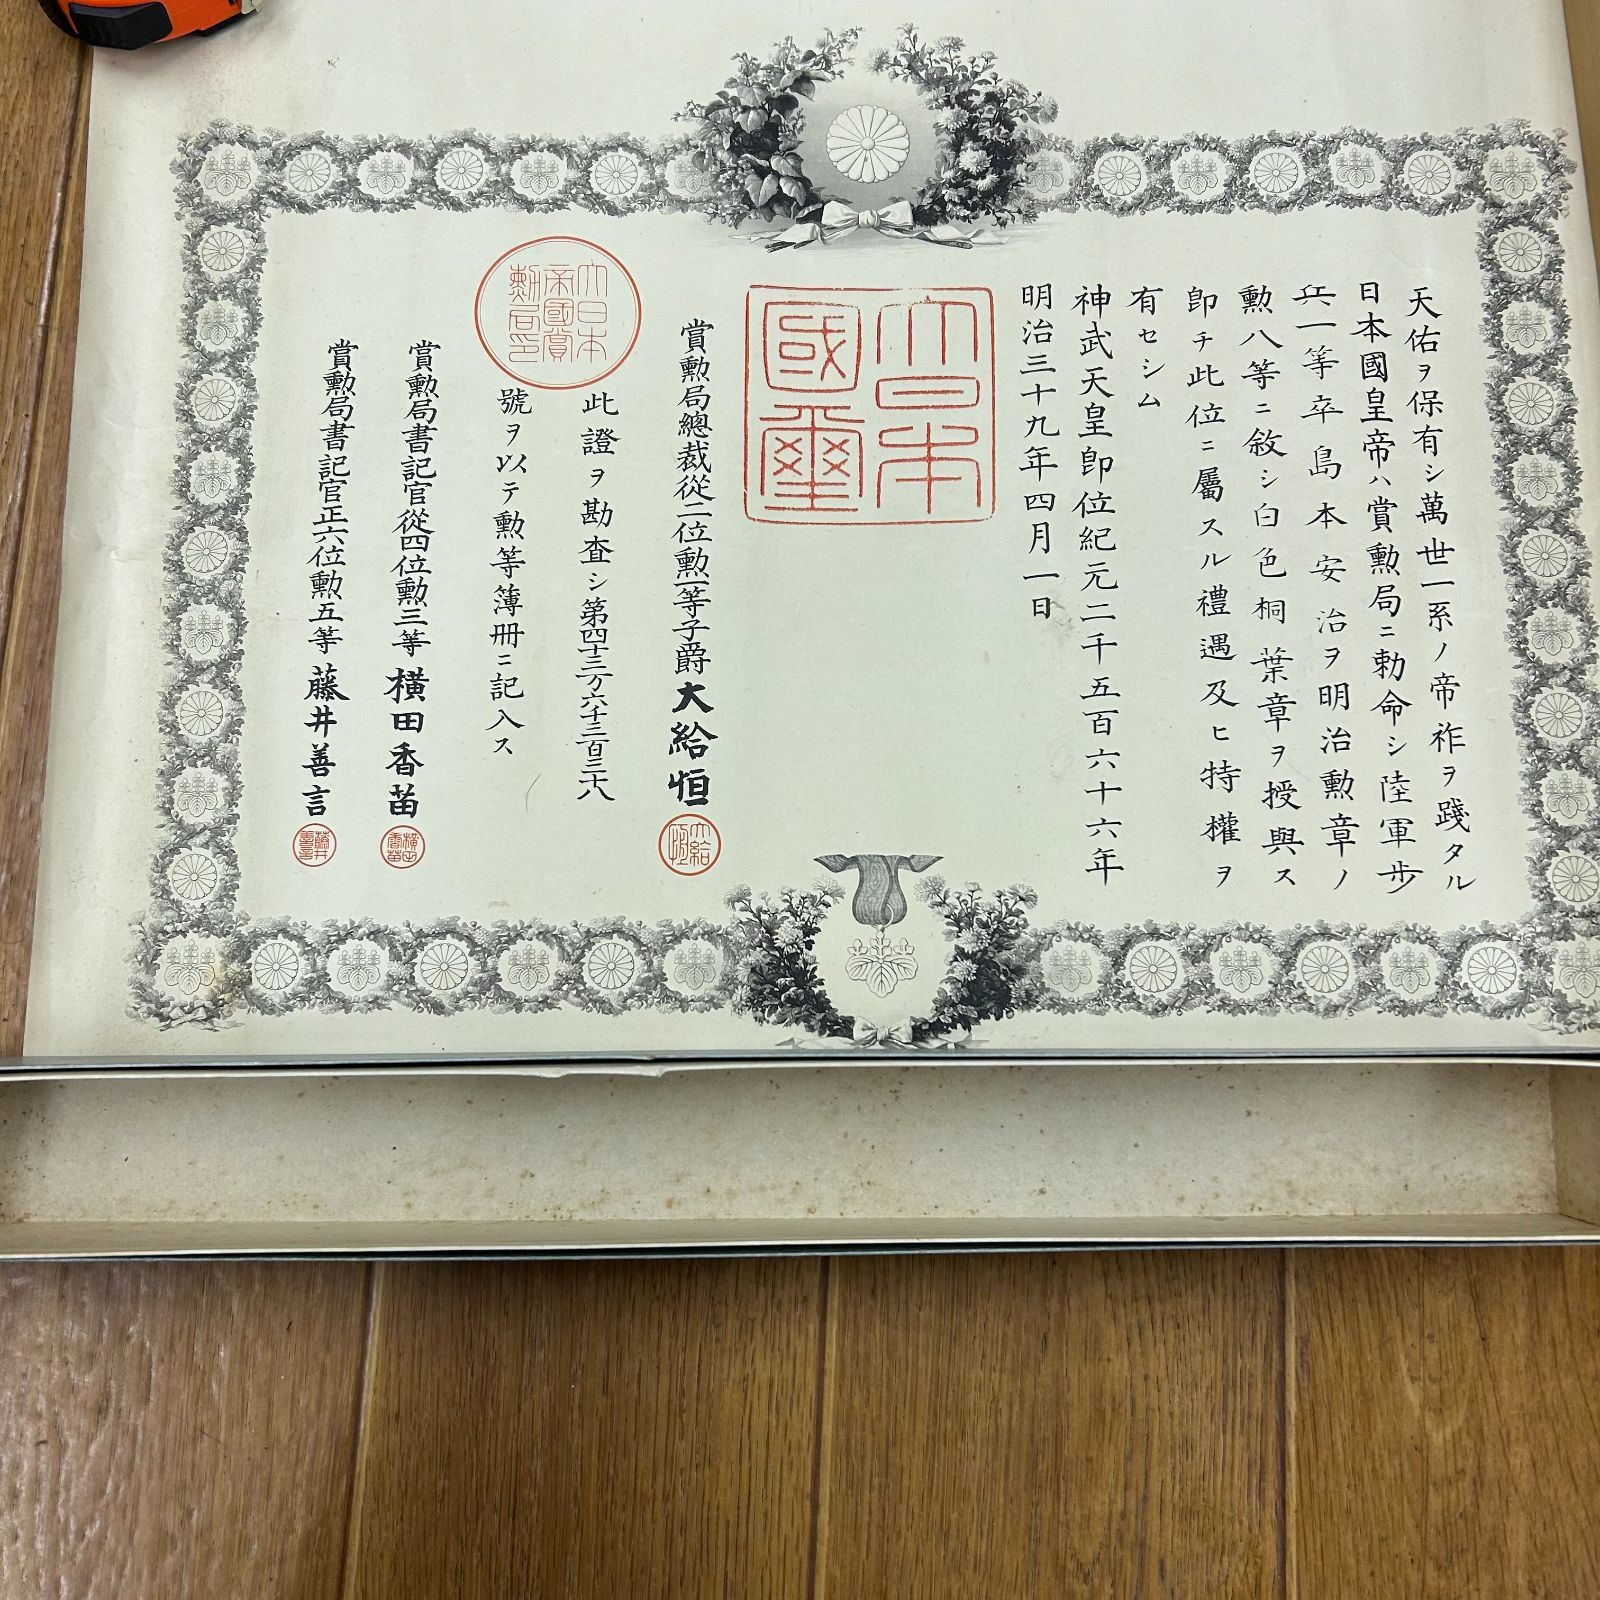 天佑ヲ保有シ萬世一系ノ帝祚ヲ踐タル
日本國皇帝ハ賞勲局ニ勅命シ陸軍歩
兵一等卒島本安治ヲ明治勲章ノ
勲八等ニ敘シ白色桐葉章ヲ授與ス
即チ此位ニ屬スル禮遇及ヒ特權ヲ
有セシム
神武天皇即位紀元二千五百六十六年
明治三十九年四月一日
大日本國璽
賞勲局總裁從二位勲一等子爵大給恒
大給恒
此證ヲ勘査シ第四十三万六千三百三十八
號ヲ以テ勲等簿册ニ記入ス
大日本帝國賞勲局印
賞勲局書記官從四位勲三等横田香苗
横田香苗
賞勲局書記官正六位勲五等藤井善言
藤井善言